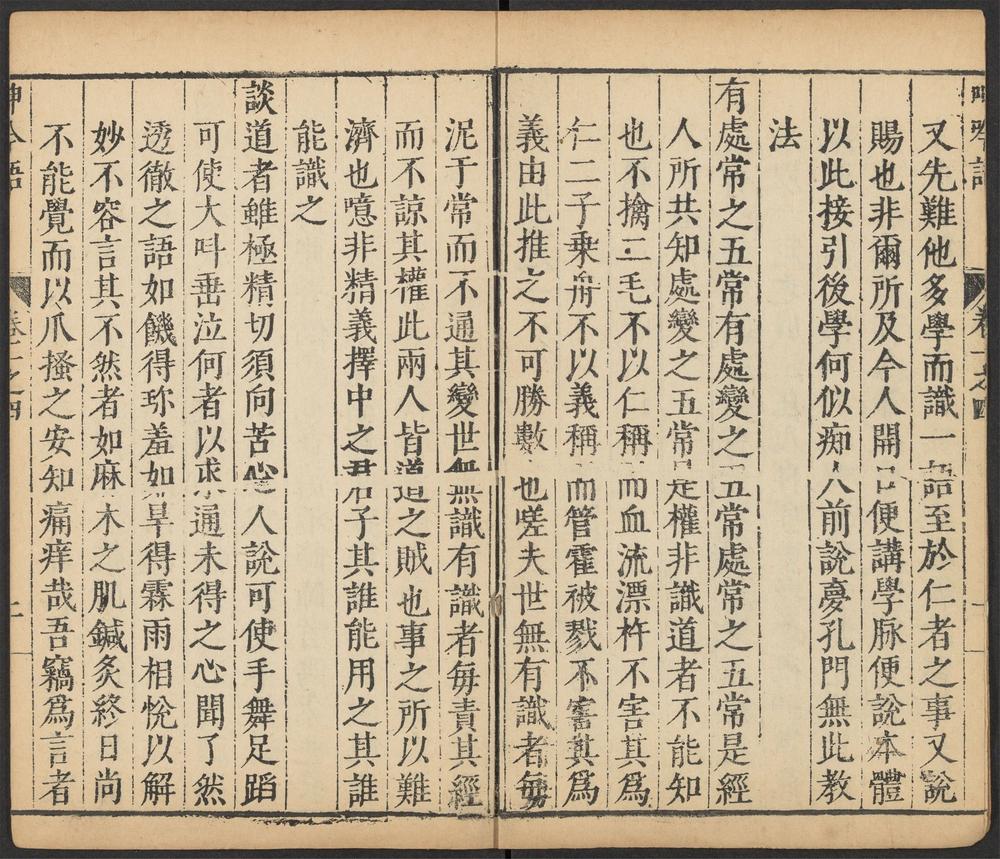 呻吟語
卷一之四
一
又先難他多學而識一語至於仁者之事又說
賜也非爾所及今人開口便講學脉便說本體
以此接引後學何似痴人前說夢孔門無此教
法
有處常之五常有處變之五常處常之五常是經
人所共知處變之五常是權非識道者不能知
也不擒二毛不以仁稱而血流漂杵不害其爲
仁二子乘舟不以義稱而管霍被戮不害其爲
義由此推之不可勝數也嗟夫世無有識者每
泥于常而不通其變世無識有識者每責其經
而不諒其權此兩人皆道之賊也事之所以難
濟也噫非精義擇中之君子其誰能用之其誰
能識之
談道者雖極精切須向苦心人說可使手舞足蹈
可使大叫垂泣何者以求通未得之心聞了然
透徹之語如饑得珎羞如旱得霖雨相悅以解
妙不容言其不然者如麻木之肌鍼灸終日尚
不能覺而以爪搔之安知痛痒哉吾竊爲言者
呻吟語
卷一之四
二